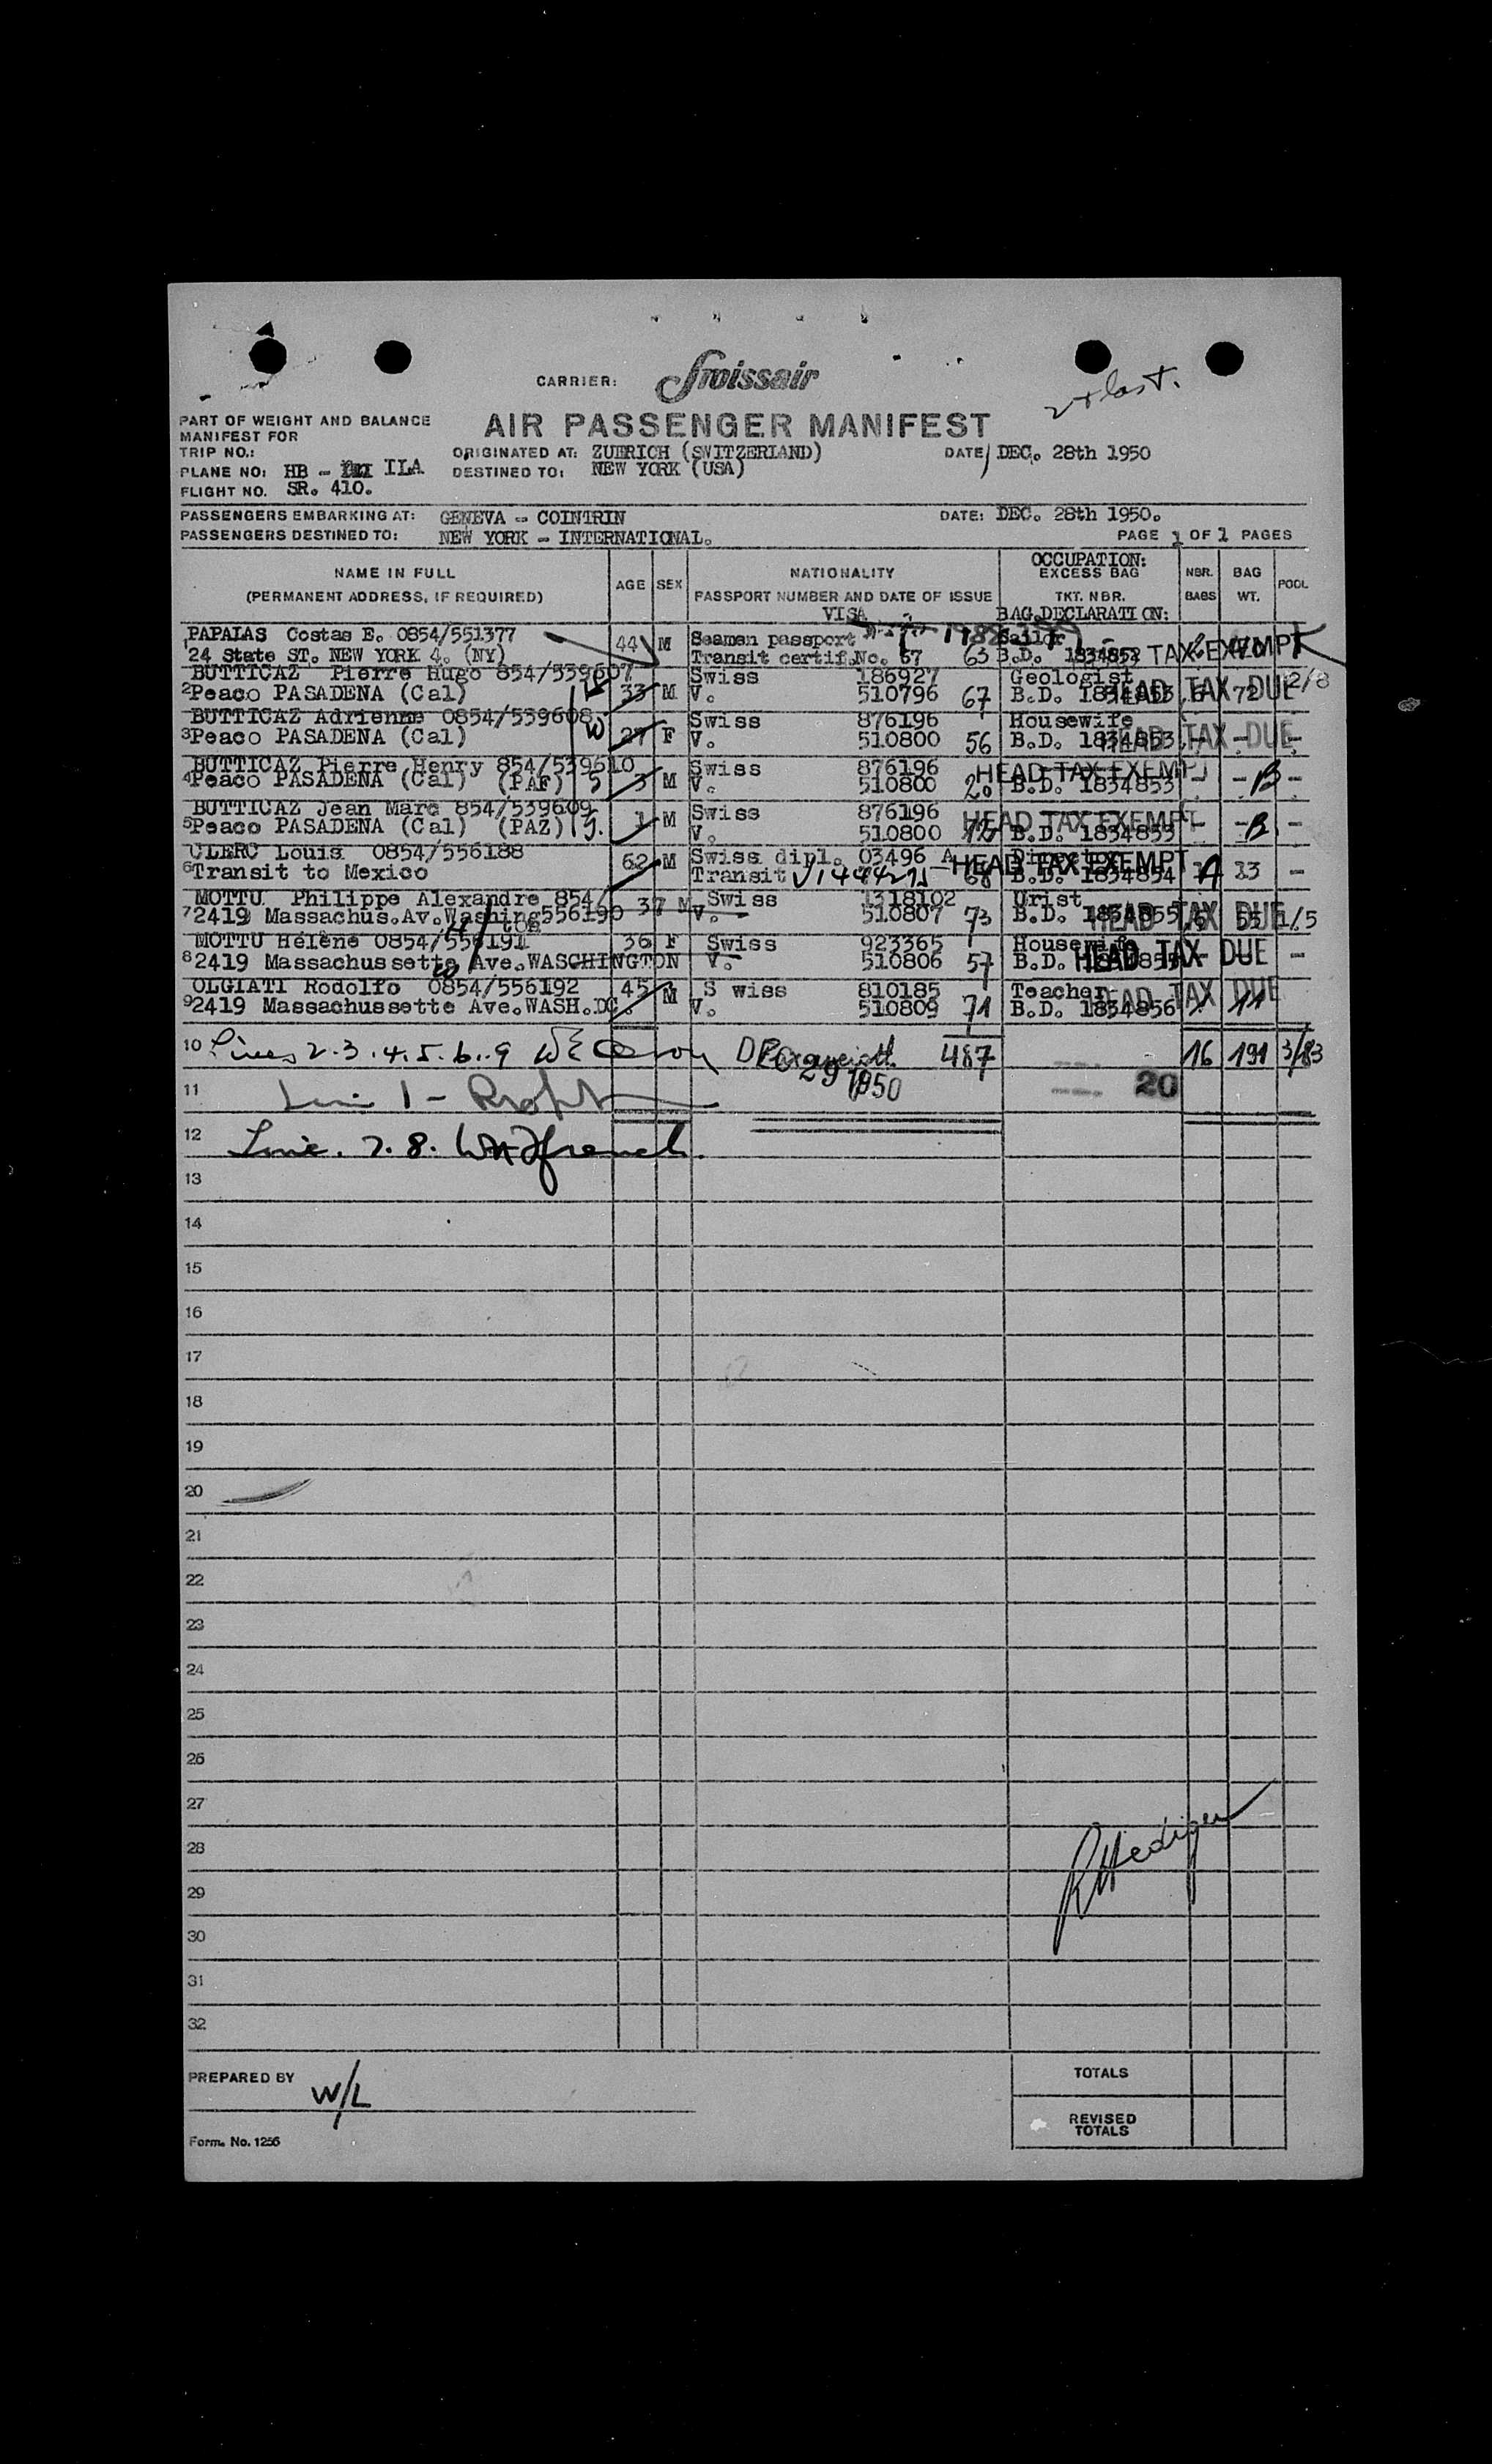 CARRIER: Swissair
AIR PASSENGER MANIFEST
PART OF WEIGHT AND BALANCE
MANIFEST FOR
TRIP NO.: ORIGINATED AT: ZUERICH (SWITZERLAND) DATE DEC. 28th 1950
PLANE NO: HB - ILA DESTINED TO: NEW YORK (USA)
FLIGHT NO. SR. 410.
PASSENGERS EMBARKING AT: GENEVA - COINTRIN DATE: DEC. 28th 1950.
PASSENGERS DESTINED TO: NEW YORK - INTERNATIONAL. PAGE 1 OF 1 PAGES
NAME IN FULL
(PERMANENT ADDRESS, IF REQUIRED)
AGE SEX
NATIONALITY
PASSPORT NUMBER AND DATE OF ISSUE
VISA
OCCUPATION:
EXCESS BAG
TKT. NBR.
BAG.DECLARATION:
NBR. BABS
BAG WT.
POOL
PAPAIAS Costas E. 0854/551377 44 M Seamen passport Sailor
1 24 State ST. NEW YORK 4. (NY) Transit certif.No. 67 63 B.D. 1834852 TAX EXEMPT
BUTTICAZ Pierre Hugo 854/539607 33 M Swiss 186927 Geologist
2 Peaco PASADENA (Cal) V. 510796 67 B.D. 1834853 HEAD TAX DUE 72 2/8
BUTTICAZ Adrienne 0854/539608 27 F Swiss 876196 Housewife
3 Peaco PASADENA (Cal) V. 510800 56 B.D. 1834853 HEAD TAX DUE -
BUTTICAZ Pierre Henry 854/539610 3 M Swiss 876196 HEAD TAX EXEMPT
4 Peaco PASADENA (Cal) (PAF) V. 510800 20 B.D. 1834853 - - B -
BUTTICAZ Jean Marc 854/539609 1 M Swiss 876196 HEAD TAX EXEMPT
5 Peaco PASADENA (Cal) (PAZ) V. 510800 12 B.D. 1834853 - - B -
CLERC Louis 0854/556188 62 M Swiss dipl. 03496 A HEAD TAX EXEMPT
6 Transit to Mexico Transit 68 B.D. 1834854 A 13 -
MOTTU Philippe Alexandre 854/ 37 M Swiss 1318102 Urist
7 2419 Massachus.Av.Washing556190 ton V. 510807 73 B.D. 1834855 HEAD TAX DUE 55 1/5
MOTTU Hélène 0854/556191 36 F Swiss 923365 Housewife
8 2419 Massachussetts Ave.WASCHINGTON V. 510806 57 B.D. 1834855 HEAD TAX DUE -
OLGIATI Rodolfo 0854/556192 45 M S wiss 810185 Teacher
9 2419 Massachussette Ave.WASH.DC. V. 510809 71 B.D. 1834856 HEAD TAX DUE 11
10 Lines 2.3.4.5.6.9 DEC 29 1950 487 16 191 3/83
11 Line 1 - 20
12 Line. 7.8.
13
14
15
16
17
18
19
20
21
22
23
24
25
26
27
28
29
30
31
32
RHediger
PREPARED BY W/L
TOTALS
REVISED
TOTALS
Form. No. 1256